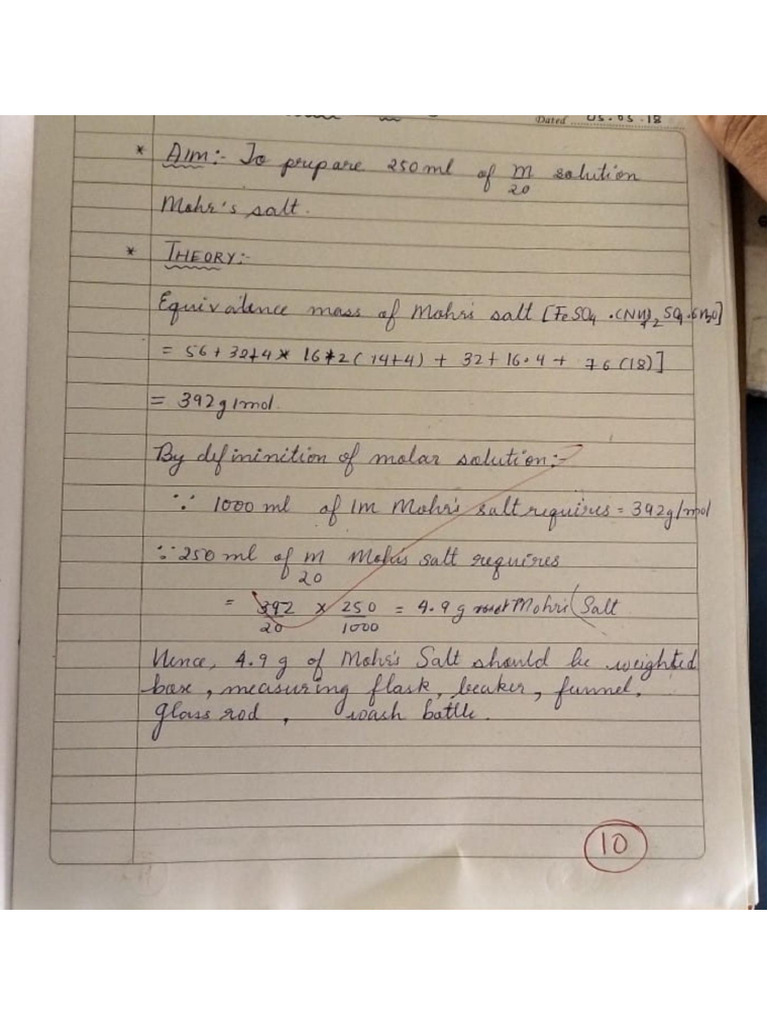 Dated 05.05.18
* AIM:- To prepare 250ml of M/20 solution
Mohr's salt.
* THEORY:-
Equivalence mass of Mohr's salt [FeSO4 .(NH4)2 SO4.6H2O]
= 56+32+4* 16*2(14+4) + 32+16.4+ 76(18)]
= 392g/mol.
By defininition of molar solution:-
∵ 1000 ml of 1M Mohr's salt requires = 392g/mol
∵ 250 ml of M/20 Mohr's salt requires
= 392/20 × 250/1000 = 4.9 g Mohr's Salt
Hence, 4.9 g of Mohr's Salt should be weighted
box, measuring flask, beaker, funnel,
glass rod, wash bottle.
10